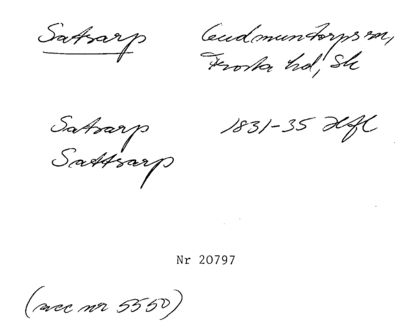 Satsarp Gudmuntorps sn,
Frosta hd, Sk
Satsarp 1831-35 Hfl
Sattsarp
Nr 20797
(acc nr 5550)